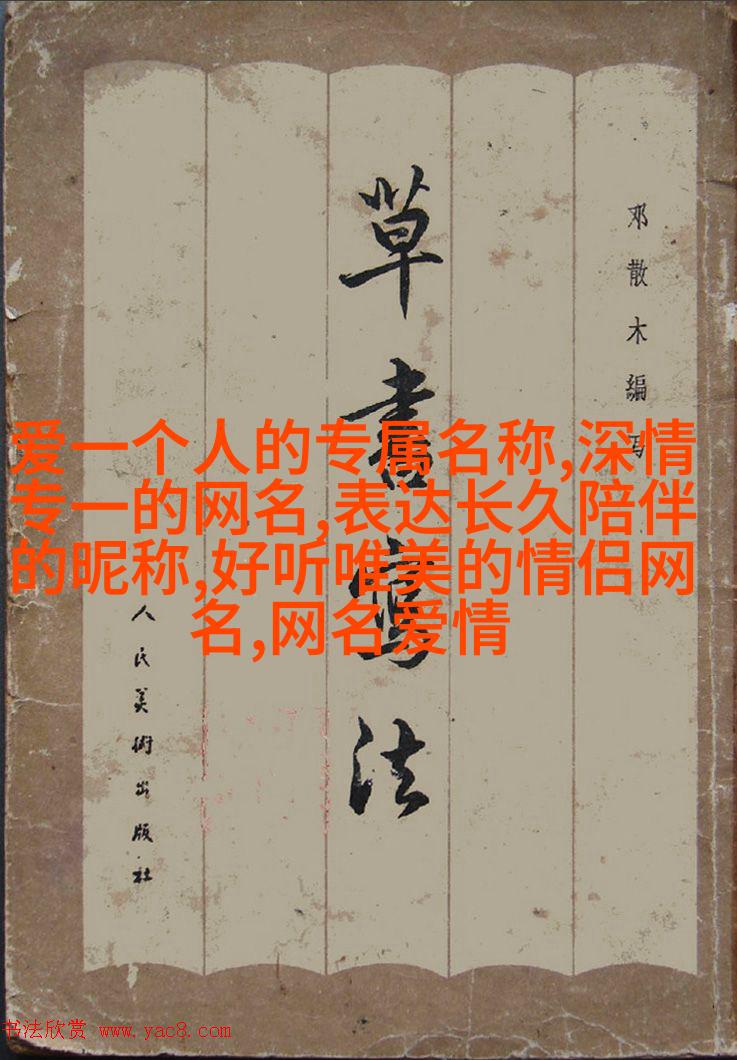 草書寫法
邓散木編写
爱一个人的专属名称,深情
专一的网名,表达长久陪伴
的昵称,好听唯美的情侣网
名,网名爱情
人民美術出版社
书法欣赏 www.yac8.com